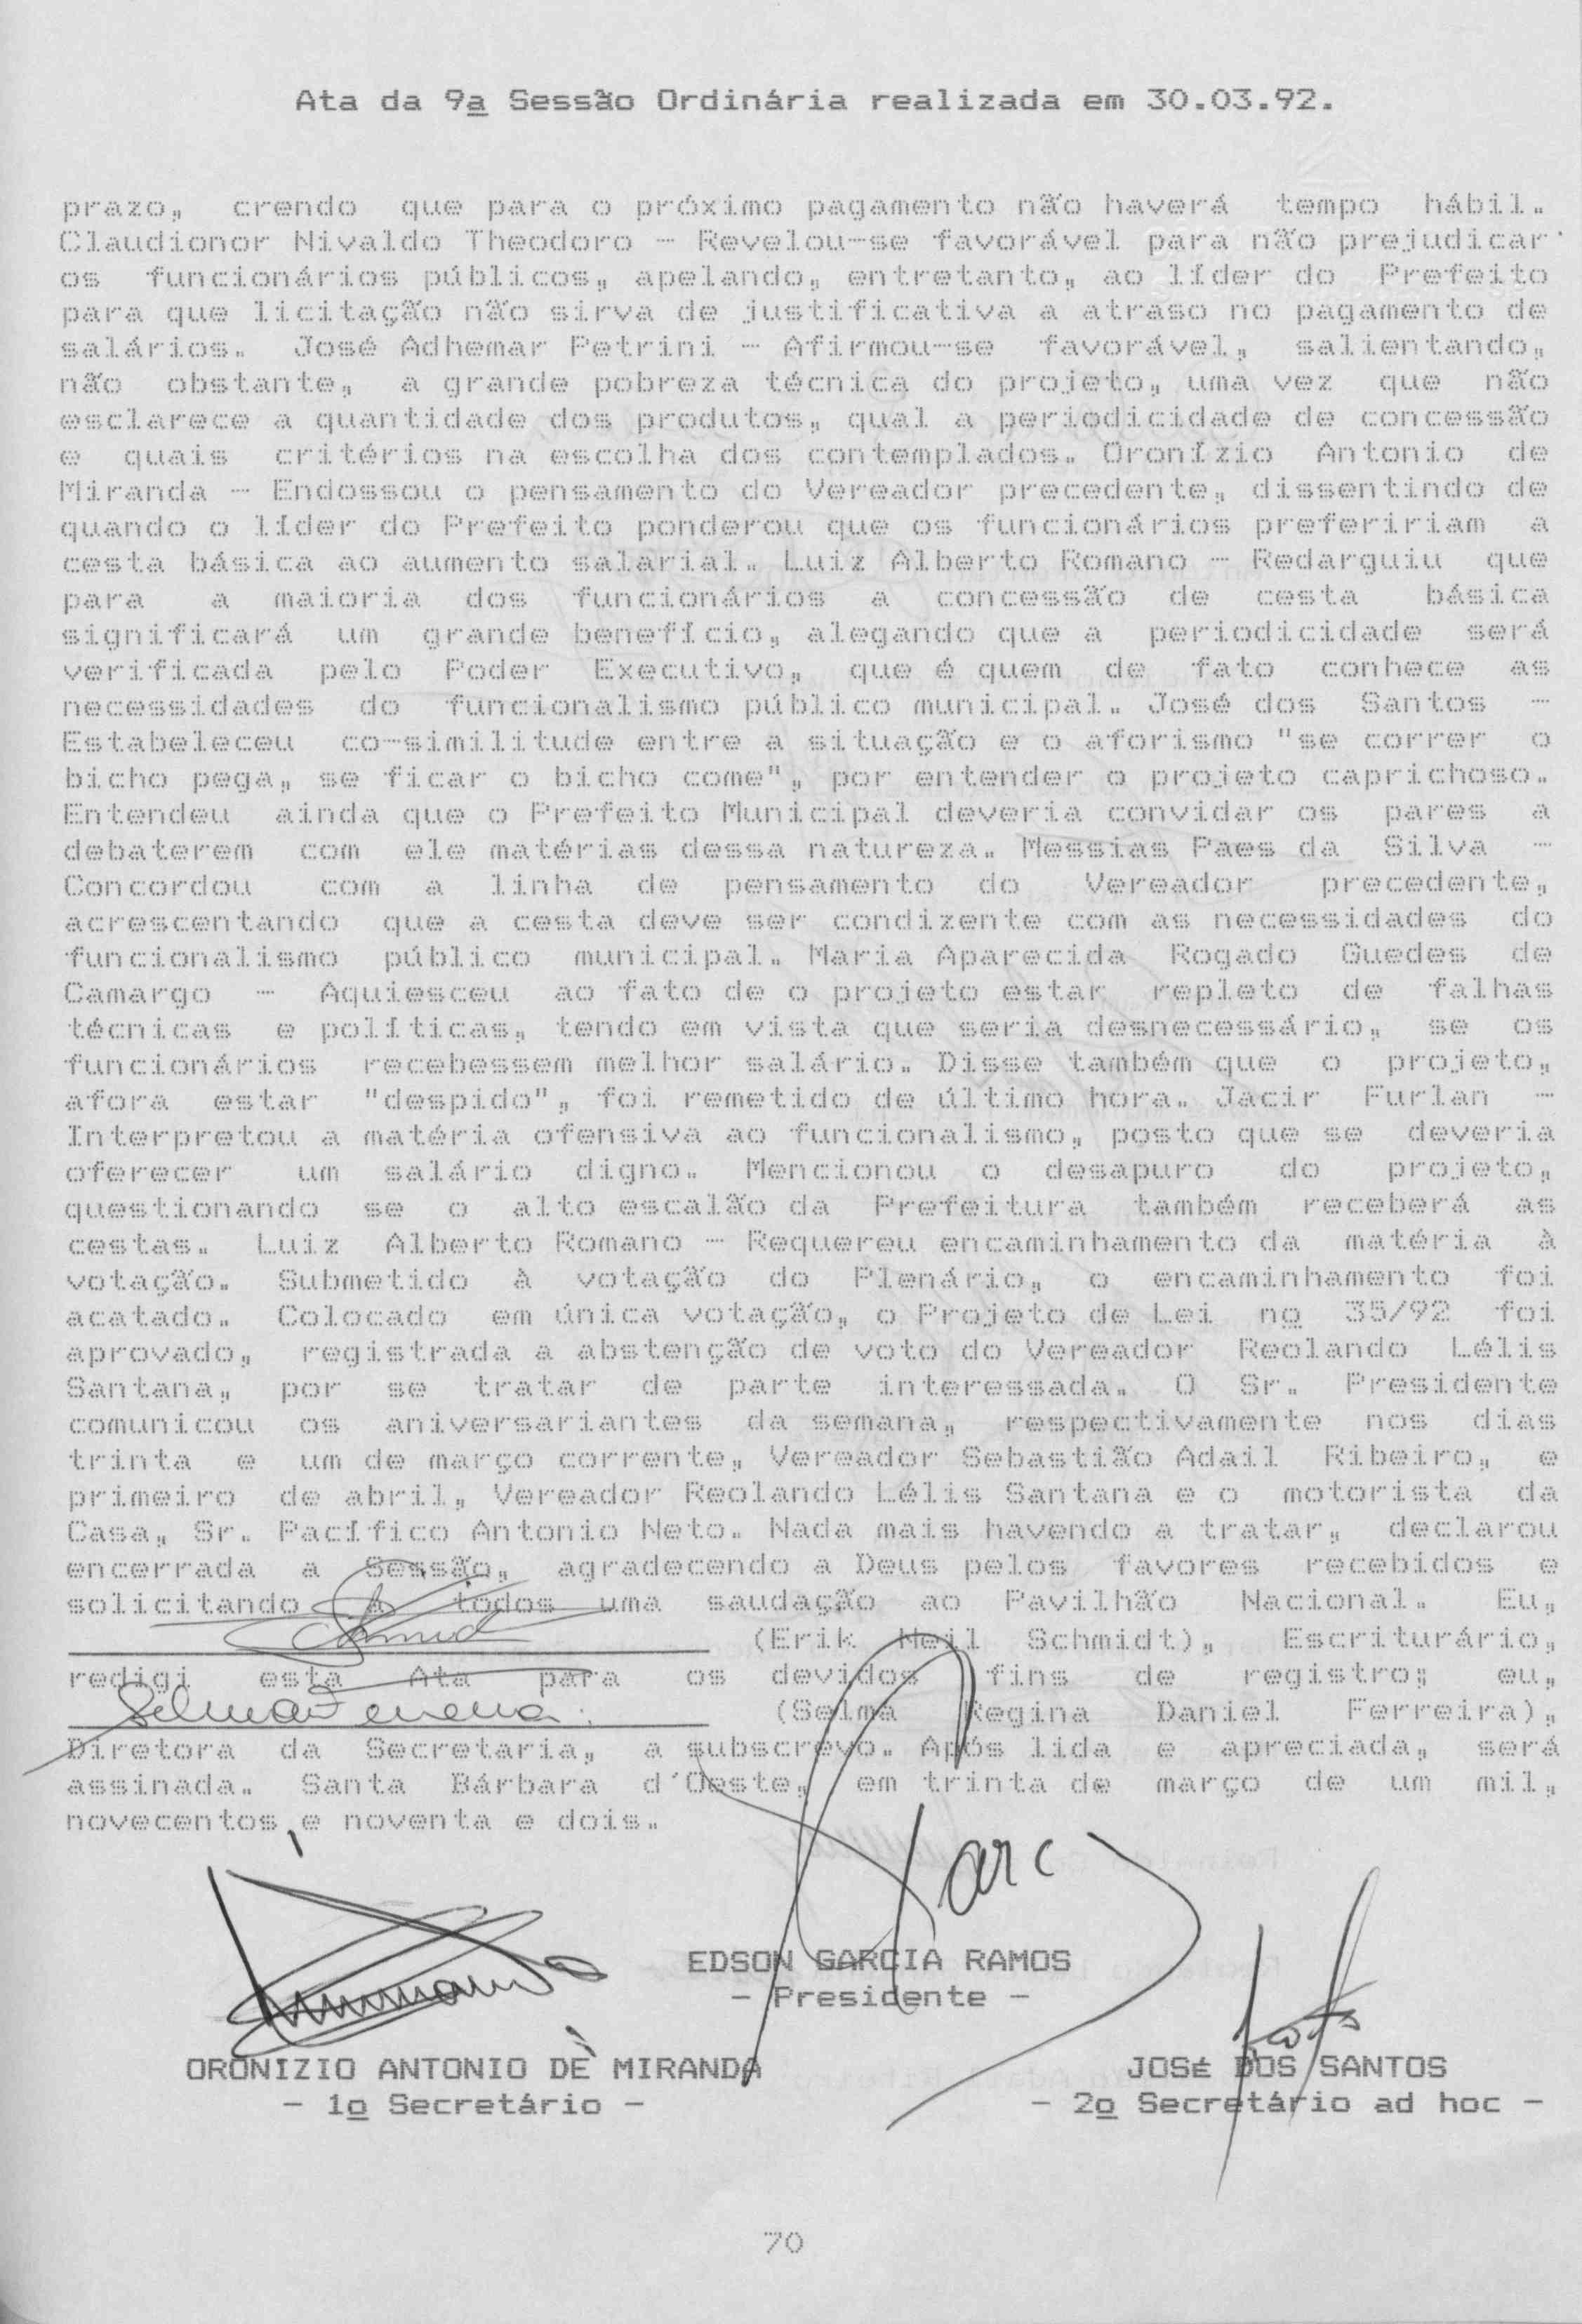 Ata da 9a Sessão Ordinária realizada em 30.03.92.
prazo, crendo que para o próximo pagamento não haverá tempo hábil.
Claudionor Nivaldo Theodoro - Revelou-se favorável para não prejudicar
os funcionários públicos, apelando, entretanto, ao líder do Prefeito
para que licitação não sirva de justificativa a atraso no pagamento de
salários. José Adhemar Petrini - Afirmou-se favorável, salientando,
não obstante, a grande pobreza técnica do projeto, uma vez que não
esclarece a quantidade dos produtos, qual a periodicidade de concessão
e quais critérios na escolha dos contemplados. Oronízio Antonio de
Miranda - Endossou o pensamento do Vereador precedente, dissentindo de
quando o líder do Prefeito ponderou que os funcionários prefeririam a
cesta básica ao aumento salarial. Luiz Alberto Romano - Redarguiu que
para a maioria dos funcionários a concessão de cesta básica
significará um grande benefício, alegando que a periodicidade será
verificada pelo Poder Executivo, que é quem de fato conhece as
necessidades do funcionalismo público municipal. José dos Santos -
Estabeleceu co-similitude entre a situação e o aforismo "se correr o
bicho pega, se ficar o bicho come", por entender o projeto caprichoso.
Entendeu ainda que o Prefeito Municipal deveria convidar os pares a
debaterem com ele matérias dessa natureza. Messias Paes da Silva -
Concordou com a linha de pensamento do Vereador precedente,
acrescentando que a cesta deve ser condizente com as necessidades do
funcionalismo público municipal. Maria Aparecida Rogado Guedes de
Camargo - Aquiesceu ao fato de o projeto estar repleto de falhas
técnicas e políticas, tendo em vista que seria desnecessário, se os
funcionários recebessem melhor salário. Disse também que o projeto,
afora estar "despido", foi remetido de último hora. Jacir Furlan -
Interpretou a matéria ofensiva ao funcionalismo, posto que se deveria
oferecer um salário digno. Mencionou o desapuro do projeto,
questionando se o alto escalão da Prefeitura também receberá as
cestas. Luiz Alberto Romano - Requereu encaminhamento da matéria à
votação. Submetido à votação do Plenário, o encaminhamento foi
acatado. Colocado em única votação, o Projeto de Lei no 35/92 foi
aprovado, registrada a abstenção de voto do Vereador Reolando Lélis
Santana, por se tratar de parte interessada. O Sr. Presidente
comunicou os aniversariantes da semana, respectivamente nos dias
trinta e um de março corrente, Vereador Sebastião Adail Ribeiro, e
primeiro de abril, Vereador Reolando Lélis Santana e o motorista da
Casa, Sr. Pacífico Antonio Neto. Nada mais havendo a tratar, declarou
encerrada a Sessão, agradecendo a Deus pelos favores recebidos e
solicitando a todos uma saudação ao Pavilhão Nacional. Eu,
(Erik Neil Schmidt), Escriturário,
redigi esta Ata para os devidos fins de registro; eu,
Selma Ferreira. (Selma Regina Daniel Ferreira),
Diretora da Secretaria, a subscrevo. Após lida e apreciada, será
assinada. Santa Bárbara d'Oeste, em trinta de março de um mil,
novecentos e noventa e dois.
EDSON GARCIA RAMOS
- Presidente -
ORONIZIO ANTONIO DE MIRANDA
- 1o Secretário -
JOSÉ DOS SANTOS
- 2o Secretário ad hoc -
70